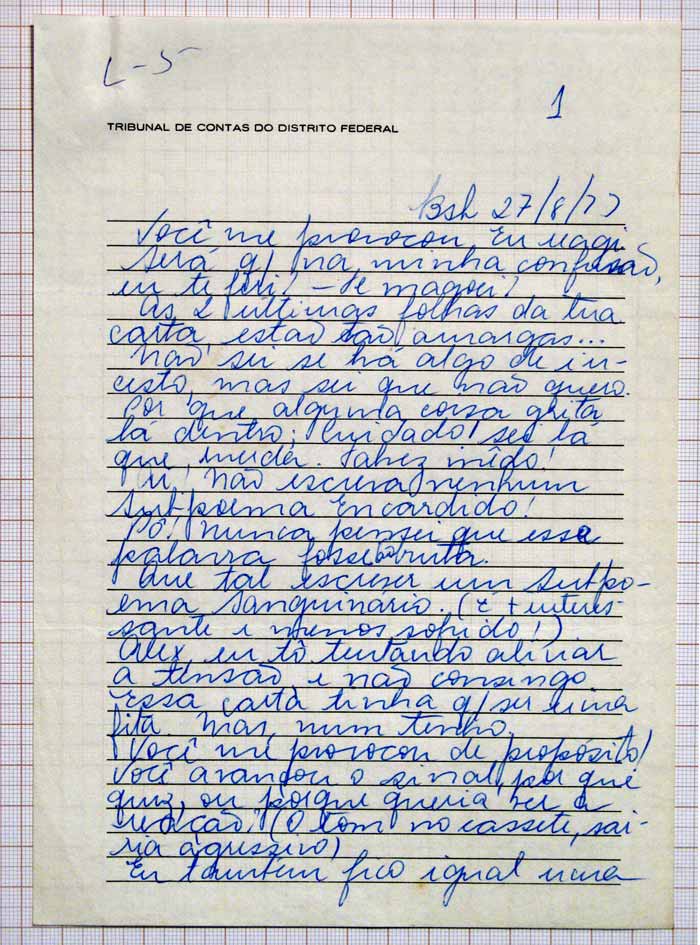 L-5
1
TRIBUNAL DE CONTAS DO DISTRITO FEDERAL
Bsb 27/8/77
Você me provocou. Eu reagi
Será q/ na minha confusão,
eu te feri? - Te magoei?
As 2 últimas folhas da tua
carta, estão tão amargas...
Não sei se há algo de in-
cesto, mas sei que não quero.
Por que alguma coisa grita
lá dentro: Cuidado! sei lá
que, merda. Talvez mêdo!
Ei! Não escreva nenhum
Surtpoema Encardido!
Pô! Nunca pensei que essa
palavra fosse bruta.
Que tal escrever um Surtpo-
ema Sanguinário. (É + interes-
sante e menos sofrido!)
Alex eu tô tentando aliviar
a tensão e não consigo
Essa carta tinha q/ ser uma
fita. Mas, num tenho.
Você me provocou de propósito!
Você avançou o sinal, por que
quiz, ou porque queria ver a
reação. (O tom no cassete, sai-
ria agressivo)
Eu também fico igual uma